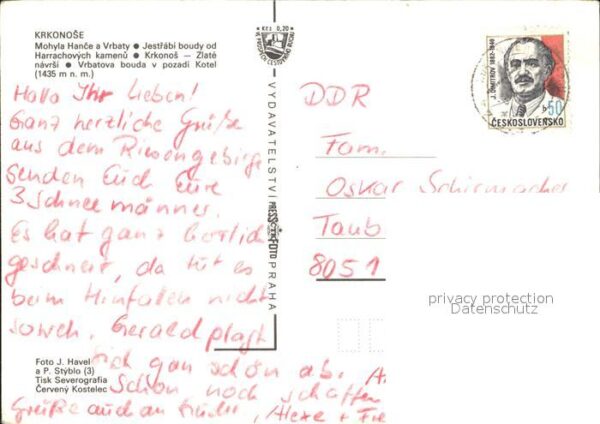 KRKONOŠE
Mohyla Hanče a Vrbaty ● Jestřábí boudy od
Harrachových kamenů ● Krkonoš — Zlaté
návrší ● Vrbatova bouda v pozadí Kotel
(1435 m n. m.)
Hallo Ihr Lieben!
Ganz herzliche Grüße
aus dem Riesengebirge
senden Euch Eure
3 Schneemänner.
Es hat ganz
geschneit, da tut es
beim Hinfallen nicht
so weh. Gerald plagt
sich ganz schön ab.
Schon noch schaffen
Grüße auch an
Alexe +
Foto J. Havel
a P. Stýblo (3)
Tisk Severografia
Červený Kostelec
Kčs 0,20
VYDAVATELSTVÍ PRESSFOTO PRAHA
J. DIMITROV 1882-1949
50
ČESKOSLOVENSKO
DDR
Fam.
Oskar Schirmacher
Taub
8051
privacy protection
Datenschutz